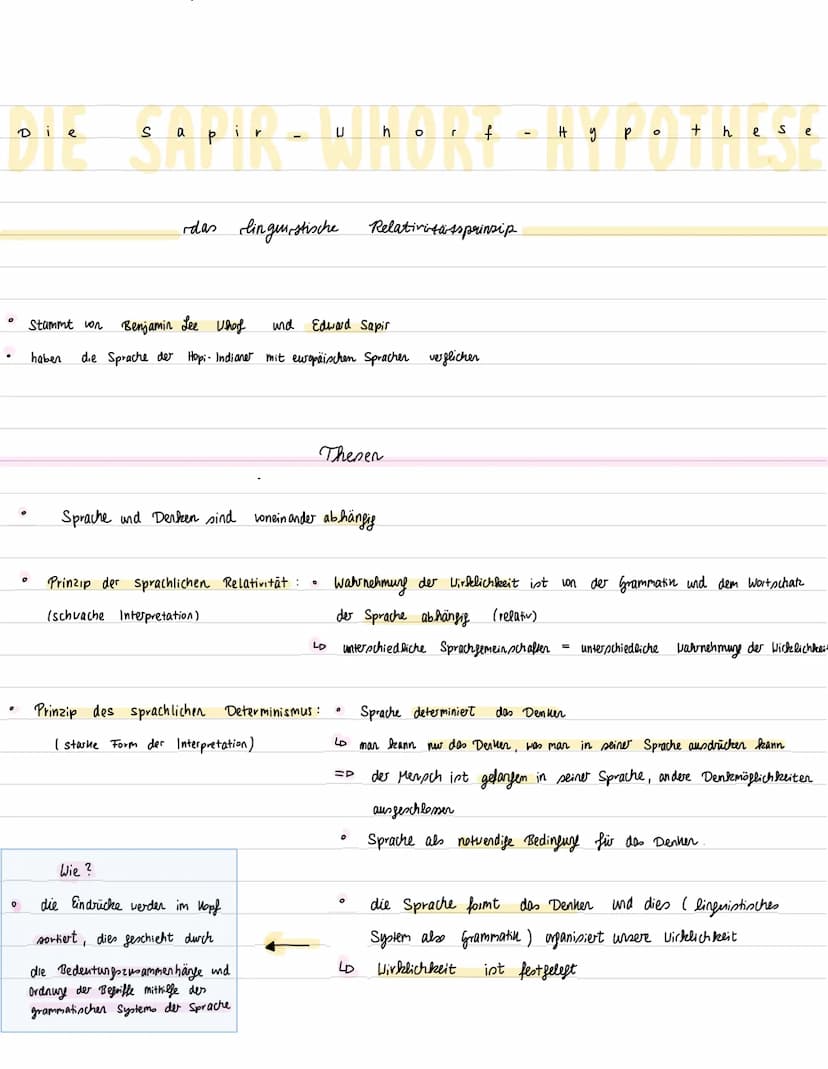 DIE SAPIR-WHORF-HYPOTHESE
Die Sapir-Whorf-Hypothese
das linguistische Relativitätsprinzip
• Stammt von Benjamin Lee Whof und Edward Sapir
• haben die Sprache der Hopi-Indianer mit europäischen Sprachen verglichen
Thesen
• Sprache und Denken sind voneinander abhängig
• Prinzip der sprachlichen Relativität : • Wahrnehmung der Wirklichkeit ist von der Grammatik und dem Wortschatz
(schwache Interpretation) der Sprache abhängig (relativ)
↳ unterschiedliche Sprachgemeinschaften = unterschiedliche Wahrnehmung der Wirklichkeit
• Prinzip des sprachlichen Determinismus : • Sprache determiniert das Denken
(starke Form der Interpretation) ↳ man kann nur das Denken, was man in seiner Sprache ausdrücken kann
=> der Mensch ist gefangen in seiner Sprache, andere Denkmöglichkeiten
ausgeschlossen
• Sprache als notwendige Bedingung für das Denken.
• die Sprache formt das Denken und dies (linguistisches
System also Grammatik) organisiert unsere Wirklichkeit
↳ Wirklichkeit ist festgelegt
Wie ?
• die Eindrücke werden im Kopf
sortiert, dies geschieht durch
die Bedeutungszusammenhänge und
Ordnung der Begriffe mithilfe des
grammatischen Systems der Sprache